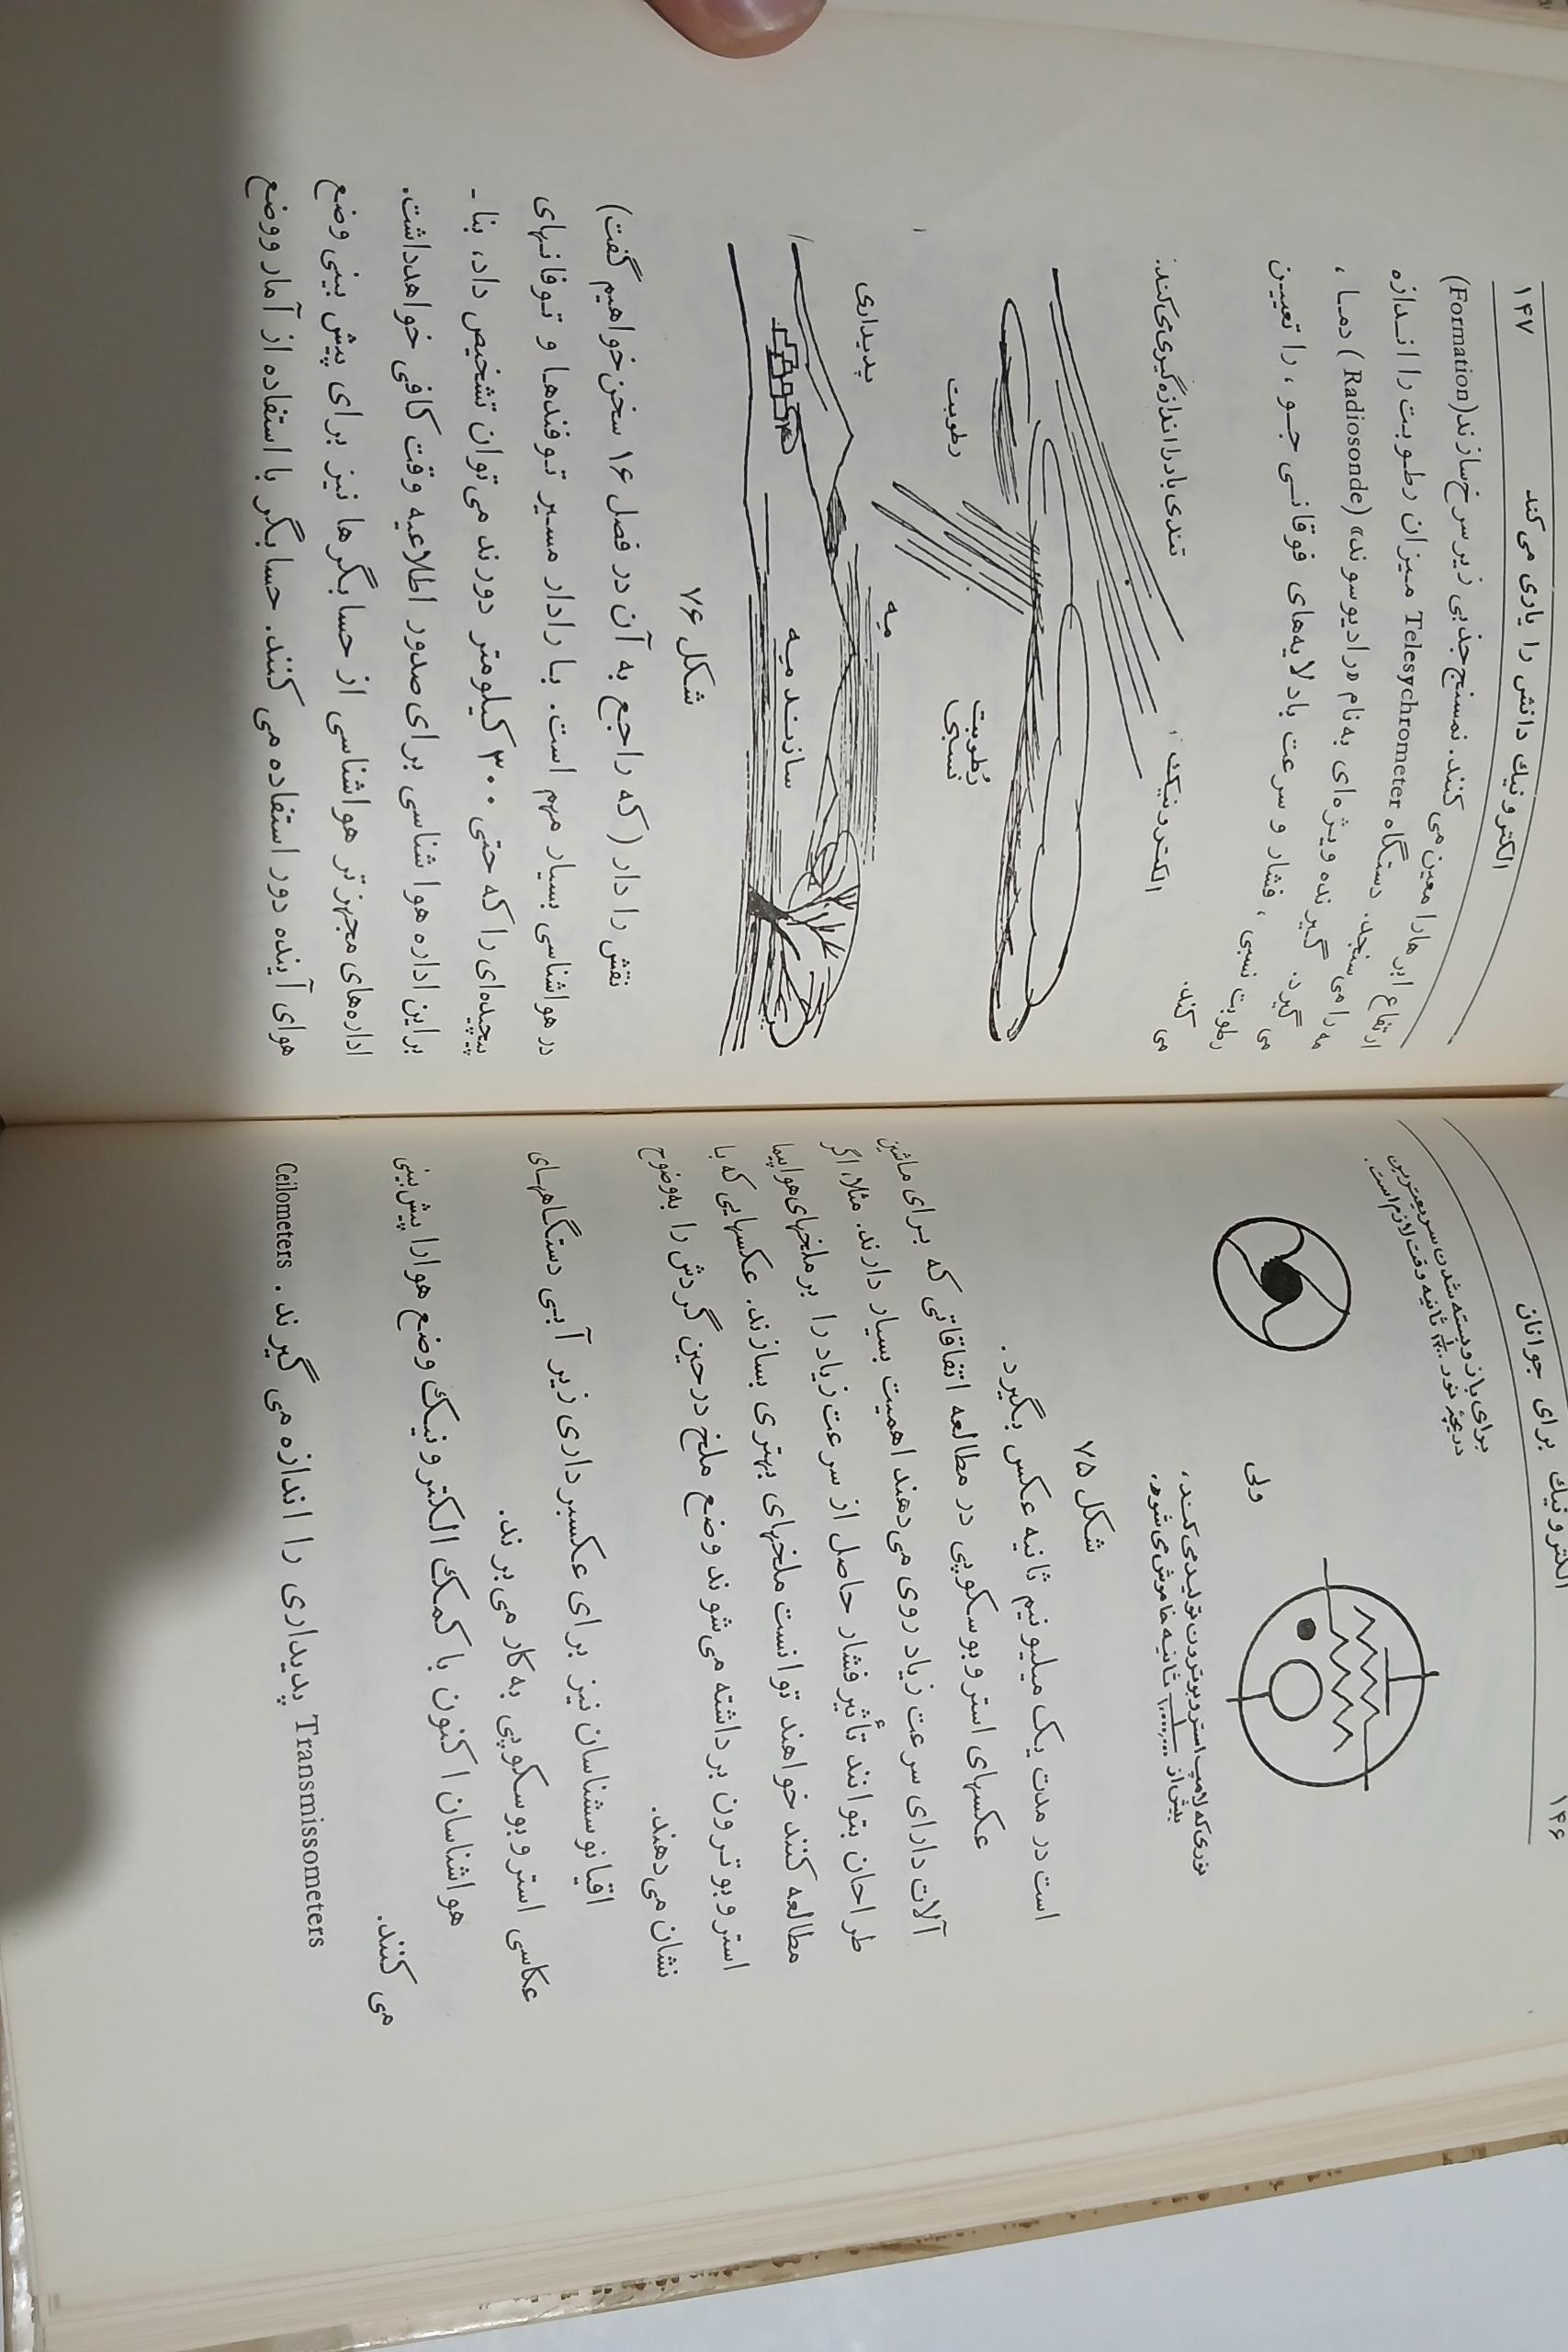 ۱۴۶
الکترونیک برای جوانان
برای باز و بسته شدن سریعترین
دریچهٔ نور ۱/۱۲۰۰ ثانیه وقت لازم است.
ولی
نوری که لامپ استروبوترون تولید می‌کند،
بیش از ۱/۱۰۰۰۰۰۰ ثانیه خاموش می‌شود.
شکل ۷۵
است در مدت یک میلیونیم ثانیه عکس بگیرد.
عکسهای استروبوسکوپی در مطالعه اتفاقاتی که برای ماشین
آلات دارای سرعت زیاد روی می‌دهند اهمیت بسیار دارند. مثلا، اگر
طراحان بتوانند تأثیر فشار حاصل از سرعت زیاد را بر ملخهای هواپیما
مطالعه کنند خواهند توانست ملخهای بهتری بسازند. عکسهایی که با
استروبوترون برداشته می‌شوند وضع ملخ در حین گردش را به‌وضوح
نشان می‌دهند.
اقیانوسشناسان نیز برای عکسبرداری زیر آبی دستگاههای
عکاسی استروبوسکوپی به کار می‌برند.
هواشناسان اکنون با کمک الکترونیک وضع هوا را پیش‌بینی
می‌کنند.
Transmissometers پدیداری را اندازه می‌گیرند. Ceilometers
الکترونیک دانش را یاری می‌کند
۱۴۷
ارتفاع ابرها را معین می‌کنند. نمسنج جذبی زیر سرخ سازند (Formation)
مه را می‌سنجد. دستگاه Telesychrometer میزان رطوبت را اندازه
می‌گیرد. گیرنده ویژه‌ای به‌نام «رادیوسوند» (Radiosonde) دما،
رطوبت نسبی، فشار و سرعت باد لایه‌های فوقانی جو، را تعیین
می‌کند.
الکترونیک، تندی باد را اندازه‌گیری می‌کند.
رطوبت
رطوبت نسبی
پدیداری
مه
سازند مه
شکل ۷۶
نقش رادار (که راجع به آن در فصل ۱۶ سخن خواهیم گفت)
در هواشناسی بسیار مهم است. با رادار مسیر توفندها و توفانهای
پیچیده‌ای را که حتی ۳۰۰ کیلومتر دورند می‌توان تشخیص داد، بنا-
بر این اداره هواشناسی برای صدور اطلاعیه وقت کافی خواهد داشت.
اداره‌های مجهزتر هواشناسی از حسابگرها نیز برای پیش بینی وضع
هوای آینده دور استفاده می‌کنند. حسابگر با استفاده از آمار و وضع